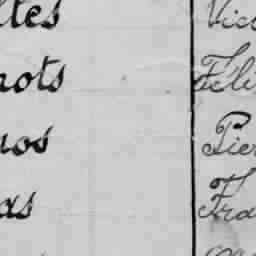 ltes Vic
nots Féli
nos Pier
as Fra